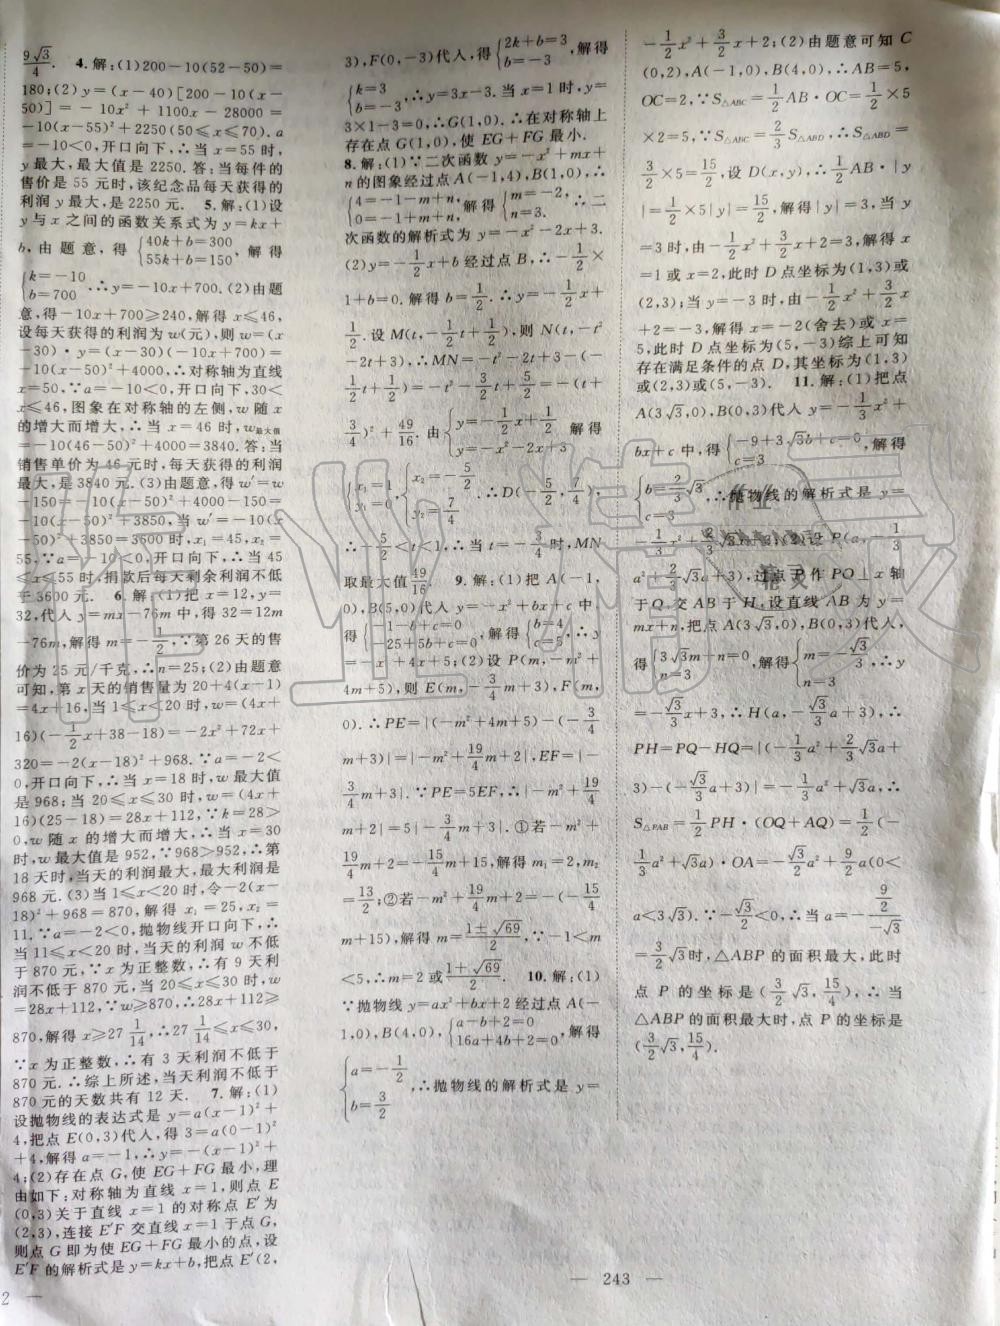 9√3/4. 4.解:(1)200-10(52-50)=
180;(2)y=(x-40)[200-10(x-
50)]=-10x²+1100x-28000=
-10(x-55)²+2250(50≤x≤70). a
=-10<0,开口向下,∴当 x=55 时,
y最大,最大值是 2250. 答:当每件的
售价是 55 元时,该纪念品每天获得的
利润 y 最大,是 2250 元. 5.解:(1)设
y 与 x 之间的函数关系式为 y=kx+
b,由题意,得{40k+b=300 55k+b=150,解得
{k=-10 b=700.∴y=-10x+700.(2)由题
意,得-10x+700≥240,解得 x≤46,
设每天获得的利润为 w(元),则 w=(x
-30)·y=(x-30)(-10x+700)=
-10(x-50)²+4000,∴对称轴为直线
x=50,∵a=-10<0,开口向下,30<
x≤46,图象在对称轴的左侧,w 随 x
的增大而增大,∴当 x=46 时,w最大值
=-10(46-50)²+4000=3840. 答:当
销售单价为 46 元时,每天获得的利润
最大,是 3840 元.(3)由题意,得 w'=w
-150=-10(x-50)²+4000-150=
-10(x-50)²+3850,当 w'=-10(x-
50)²+3850=3600 时,x₁=45,x₂=
55,∵a=-10<0,开口向下,∴当 45
≤x≤55 时,捐款后每天剩余利润不低
于 3600 元. 6.解:(1)把 x=12,y=
32,代入 y=mx-76m 中,得 32=12m
-76m,解得 m=-1/2,∵第 26 天的售
价为 25 元/千克,∴n=25;(2)由题意
可知,第 x 天的销售量为 20+4(x-1)
=4x+16,当 1≤x<20 时,w=(4x+
16)(-1/2x+38-18)=-2x²+72x+
320=-2(x-18)²+968. ∵a=-2<
0,开口向下,∴当 x=18 时,w 最大值
是 968;当 20≤x≤30 时,w=(4x+
16)(25-18)=28x+112,∵k=28>
0,w 随 x 的增大而增大,∴当 x=30
时,w 最大值是 952,∵968>952,∴第
18 天时,当天的利润最大,最大利润是
968 元.(3)当 1≤x<20 时,令-2(x-
18)²+968=870,解得 x₁=25,x₂=
11. ∵a=-2<0,抛物线开口向下,∴
当 11≤x<20 时,当天的利润 w 不低
于 870 元,∵x 为正整数,∴有 9 天利
润不低于 870 元,当 20≤x≤30 时,w
=28x+112,∵w≥870,∴28x+112≥
870,解得 x≥27 1/14,∴27 1/14≤x≤30,
∵x 为正整数,∴有 3 天利润不低于
870 元. ∴综上所述,当天利润不低于
870 元的天数共有 12 天. 7.解:(1)
设抛物线的表达式是 y=a(x-1)²+
4,把点 E(0,3)代人,得 3=a(0-1)²
+4,解得 a=-1,∴y=-(x-1)²+
4;(2)存在点 G,使 EG+FG 最小,理
由如下:对称轴为直线 x=1,则点 E
(0,3)关于直线 x=1 的对称点 E' 为
(2,3),连接 E'F 交直线 x=1 于点 G,
则点 G 即为使 EG+FG 最小的点,设
E'F 的解析式是 y=kx+b,把点 E'(2,
2 —
3),F(0,-3)代人,得{2k+b=3 b=-3,解得
{k=3 b=-3,∴y=3x-3. 当 x=1 时,y=
3×1-3=0,∴G(1,0). ∴在对称轴上
存在点 G(1,0),使 EG+FG 最小.
8.解:(1)∵二次函数 y=-x²+mx+
n 的图象经过点 A(-1,4),B(1,0),∴
{4=-1-m+n, 0=-1+m+n,解得{m=-2, n=3. ∴二
次函数的解析式为 y=-x²-2x+3.
(2)y=-1/2x+b 经过点 B,∴-1/2×
1+b=0. 解得 b=1/2. ∴y=-1/2x+
1/2. 设 M(t,-1/2t+1/2),则 N(t,-t²
-2t+3),∴MN=-t²-2t+3-(-
1/2t+1/2)=-t²-3/2t+5/2=-(t+
3/4)²+49/16. 由{y=-1/2x+1/2 y=-x²-2x+3 解得
{x₁=1 y₁=0 {x₂=-5/2 y₂=7/4. ∴D(-5/2,7/4),
∴-5/2<t<1,∴当 t=-3/4 时,MN
取最大值49/16. 9.解:(1)把 A(-1,
0),B(5,0)代入 y=-x²+bx+c 中,
得{-1-b+c=0 -25+5b+c=0,解得{b=4 c=5,∴y
=-x²+4x+5;(2)设 P(m,-m²+
4m+5),则 E(m,-3/4m+3),F(m,
0). ∴PE=|(-m²+4m+5)-(-3/4
m+3)|=|-m²+19/4m+2|,EF=|-
3/4m+3|. ∵PE=5EF,∴|-m²+19/4
m+2|=5|-3/4m+3|. ①若-m²+
19/4m+2=-15/4m+15,解得 m₁=2,m₂
=13/2;②若-m²+19/4m+2=-(-15/4
m+15),解得 m=1±√69/2,∵-1<m
<5,∴m=2 或1+√69/2. 10.解:(1)
∵抛物线 y=ax²+bx+2 经过点 A(-
1,0),B(4,0),{a-b+2=0 16a+4b+2=0,解得
{a=-1/2 b=3/2,∴抛物线的解析式是 y=
-1/2x²+3/2x+2;(2)由题意可知 C
(0,2),A(-1,0),B(4,0),∴AB=5,
OC=2,∵S△ABC=1/2AB·OC=1/2×5
×2=5,∵S△ABC=2/3S△ABD,∴S△ABD=
3/2×5=15/2,设 D(x,y),∴1/2AB·|y
|=1/2×5|y|=15/2,解得|y|=3,当 y
=3 时,由-1/2x²+3/2x+2=3,解得 x
=1 或 x=2,此时 D 点坐标为(1,3)或
(2,3);当 y=-3 时,由-1/2x²+3/2x
+2=-3,解得 x=-2(舍去)或 x=
5,此时 D 点坐标为(5,-3)综上可知
存在满足条件的点 D,其坐标为(1,3)
或(2,3)或(5,-3). 11.解:(1)把点
A(3√3,0),B(0,3)代人 y=-1/3x²+
bx+c 中,得{-9+3√3b+c=0 c=3,解得
{b=2/3√3 c=3,∴抛物线的解析式是 y=
-1/3x²+2/3√3x+3;(2)设 P(a,-1/3
a²+2/3√3a+3),过点 P 作 PQ⊥x 轴
于 Q,交 AB 于 H,设直线 AB 为 y=
mx+n,把点 A(3√3,0),B(0,3)代人,
得{3√3m+n=0 n=3,解得{m=-√3/3 n=3,∴y
=-√3/3x+3,∴H(a,-√3/3a+3),∴
PH=PQ-HQ=|(-1/3a²+2/3√3a+
3)-(-√3/3a+3)|=-1/3a²+√3a,∴
S△PAB=1/2PH·(OQ+AQ)=1/2(-
1/3a²+√3a)·OA=-√3/2a²+9/2a(0<
a<3√3). ∵-√3/2<0,∴当 a=-9/2/-√3
=3/2√3 时,△ABP 的面积最大,此时
点 P 的坐标是(3/2√3,15/4),∴当
△ABP 的面积最大时,点 P 的坐标是
(3/2√3,15/4).
— 243 —
作业精灵